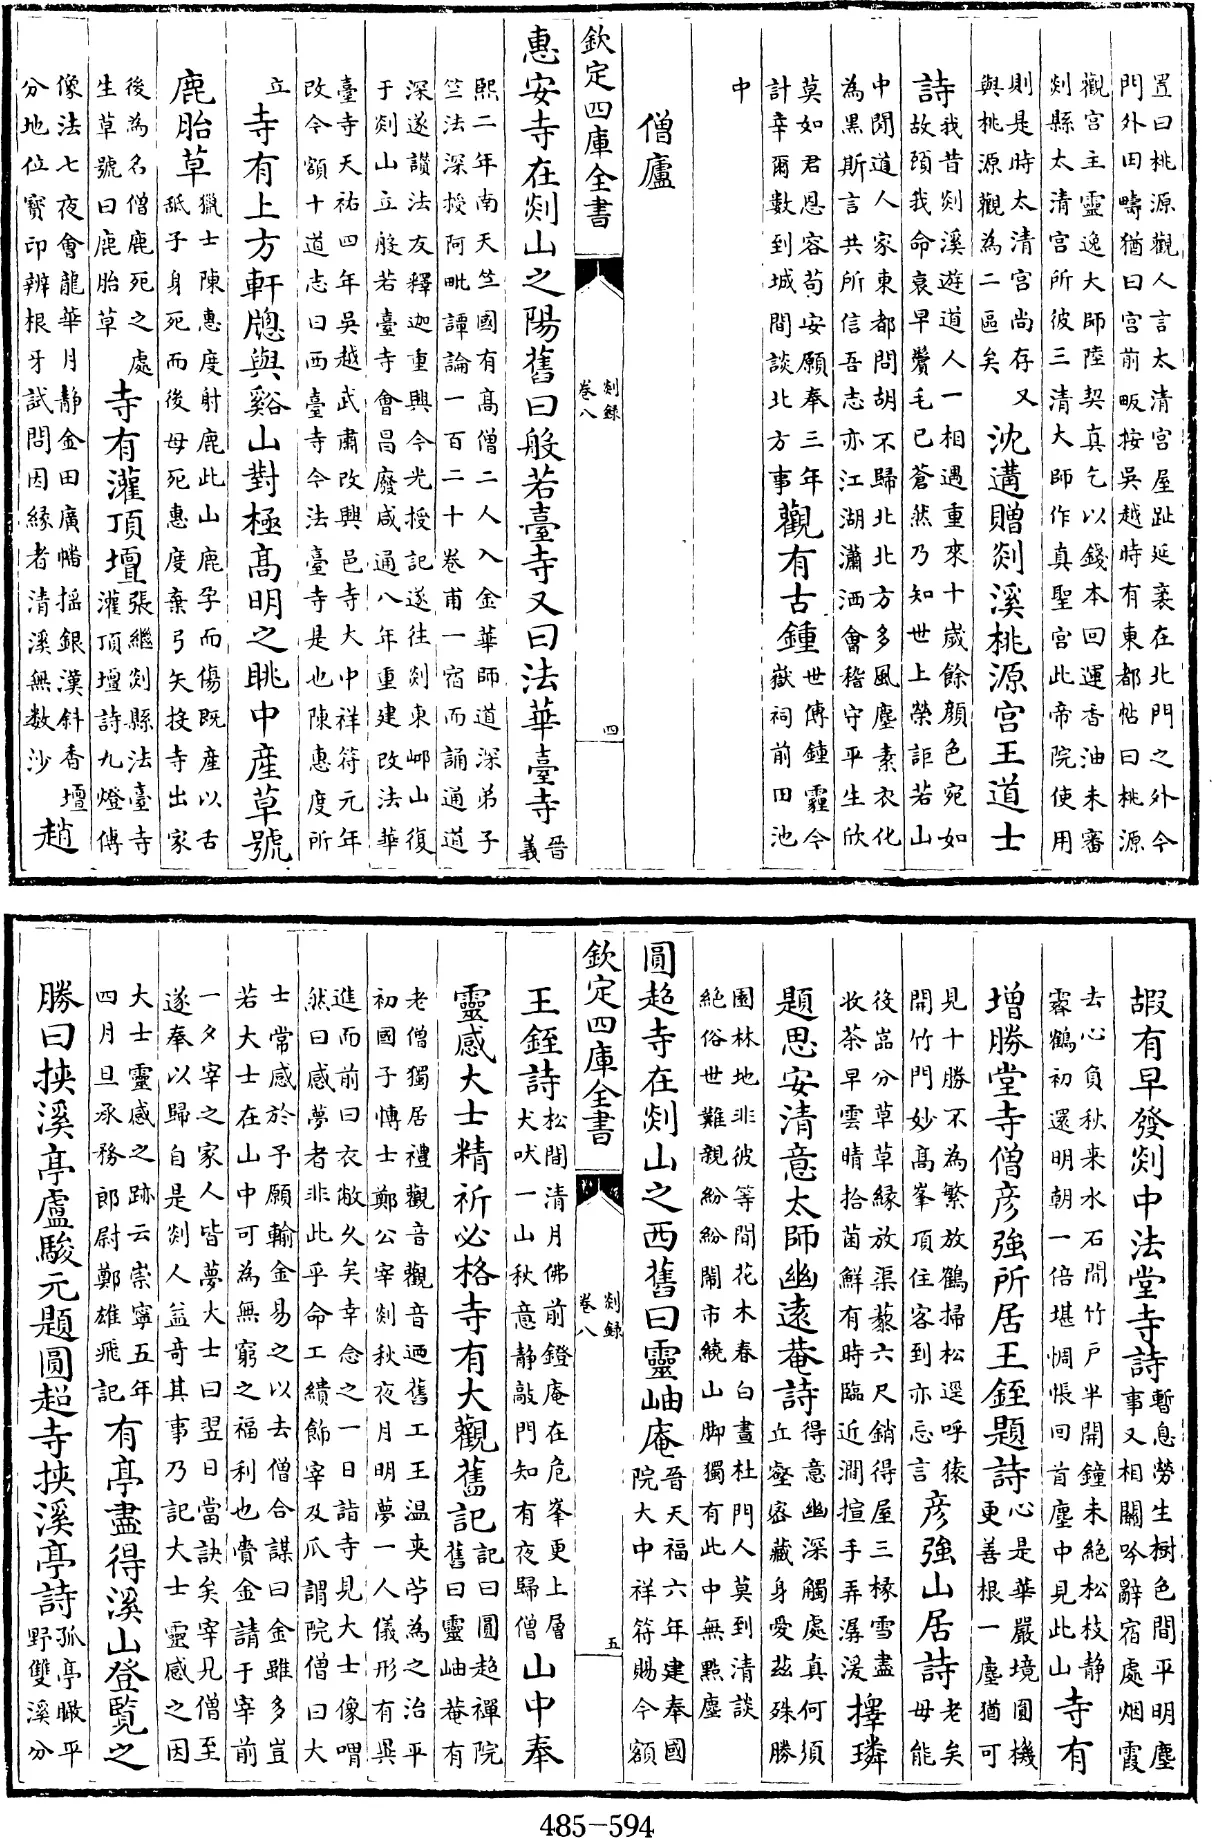 置曰桃源觀人言太清宫屋趾延袤在北門之外今
門外田疇猶曰宫前畈按吳越時有東都帖曰桃源
觀宫主靈逸大師陸契真乞以錢本回運香油未審
剡縣太清宫所彼三清大師作真聖宫此帝院使用
則是時太清宫尚存又
與桃源觀為二區矣
沈遘贈剡溪桃源宫王道士
詩
我昔剡溪遊道人一相遇重來十歲餘顔色宛如
故頋我命衰早鬢毛已蒼然乃知世上榮詎若山
中閒道人家東都問胡不歸北北方多風塵素衣化
為黑斯言共所信吾志亦江湖瀟洒會稽守平生欣
莫如君恩容苟安願奉三年
計幸爾數到城間談北方事
觀有古鍾
世傳鍾霾今
嶽祠前田池
中
僧廬
欽定四庫全書
剡録
卷八
四
惠安寺在剡山之陽舊曰般若臺寺又曰法華臺寺
晉
義
熙二年南天竺國有髙僧二人入金華師道深弟子
竺法深授阿毗譚論一百二十卷甫一宿而誦通道
深遂讃法友釋迦重興今光授記遂往剡東邺山復
于剡山立般若臺寺會昌廢咸通八年重建改法華
臺寺天祐四年吳越武肅改興邑寺大中祥符元年
改今額十道志曰西臺寺今法臺寺是也陳惠度所
立
寺有上方軒牕與谿山對極髙明之眺中産草號
鹿胎草
獵士陳惠度射鹿此山鹿孕而傷既産以舌
舐子身死而後母死惠度棄弓矢投寺出家
後為名僧鹿死之處
生草號曰鹿胎草
寺有灌頂壇
張繼剡縣法臺寺
灌頂壇詩九燈傳
像法七夜會龍華月静金田廣幡揺銀漢斜香壇
分地位寳印辨根牙試問因緣者清溪無數沙
趙
嘏有早發剡中法堂寺詩
暫息勞生樹色間平明塵
事又相關吟辭宿處烟霞
去心負秋来水石閒竹戸半開鐘未絶松枝静
霽鶴初還明朝一倍堪惆悵回首塵中見此山
寺有
增勝堂寺僧彦強所居王銍題詩
心是華嚴境圓機
更善根一塵猶可
見十勝不為繁放鶴掃松逕呼猿
開竹門妙髙峯頂住客到亦忘言
彦強山居詩
老矣
毋能
後嵓分草草縁放渠藜六尺銷得屋三椽雪盡
收茶早雲晴拾菌鮮有時臨近澗揎手弄潺湲
擇璘
題思安清意太師幽遠菴詩
得意幽深觸處真何須
丘壑宻藏身愛兹殊勝
園林地非彼等閒花木春白晝杜門人莫到清談
絶俗世難親紛紛閙市繞山脚獨有此中無點塵
圓超寺在剡山之西舊曰靈岫庵
晉天福六年建奉國
院大中祥符賜今額
欽定四庫全書
剡録
卷八
五
王銍詩
松間清月佛前鐙庵在危峯更上層
犬吠一山秋意静敲門知有夜歸僧
山中奉
靈感大士精祈必格寺有大觀舊記
記曰圓超禪院
舊曰靈岫菴有
老僧獨居禮觀音觀音廼舊工王温夹苧為之治平
初國子愽士鄭公宰剡秋夜月明夢一人儀形有異
進而前曰衣敝久矣幸念之一日詣寺見大士像喟
然曰感夢者非此乎命工繢飾宰及爪謂院僧曰大
士常感於予願輸金易之以去僧合謀曰金雖多豈
若大士在山中可為無窮之福利也賫金請于宰前
一夕宰之家人皆夢大士曰翌日當訣矣宰見僧至
遂奉以歸自是剡人益奇其事乃記大士靈感之因
大士靈感之跡云崇寧五年
四月旦承務郎尉鄭雄飛記
有亭盡得溪山登覧之
勝曰挾溪亭盧駿元題圓超寺挾溪亭詩
孤亭瞰平
野雙溪分
485-594